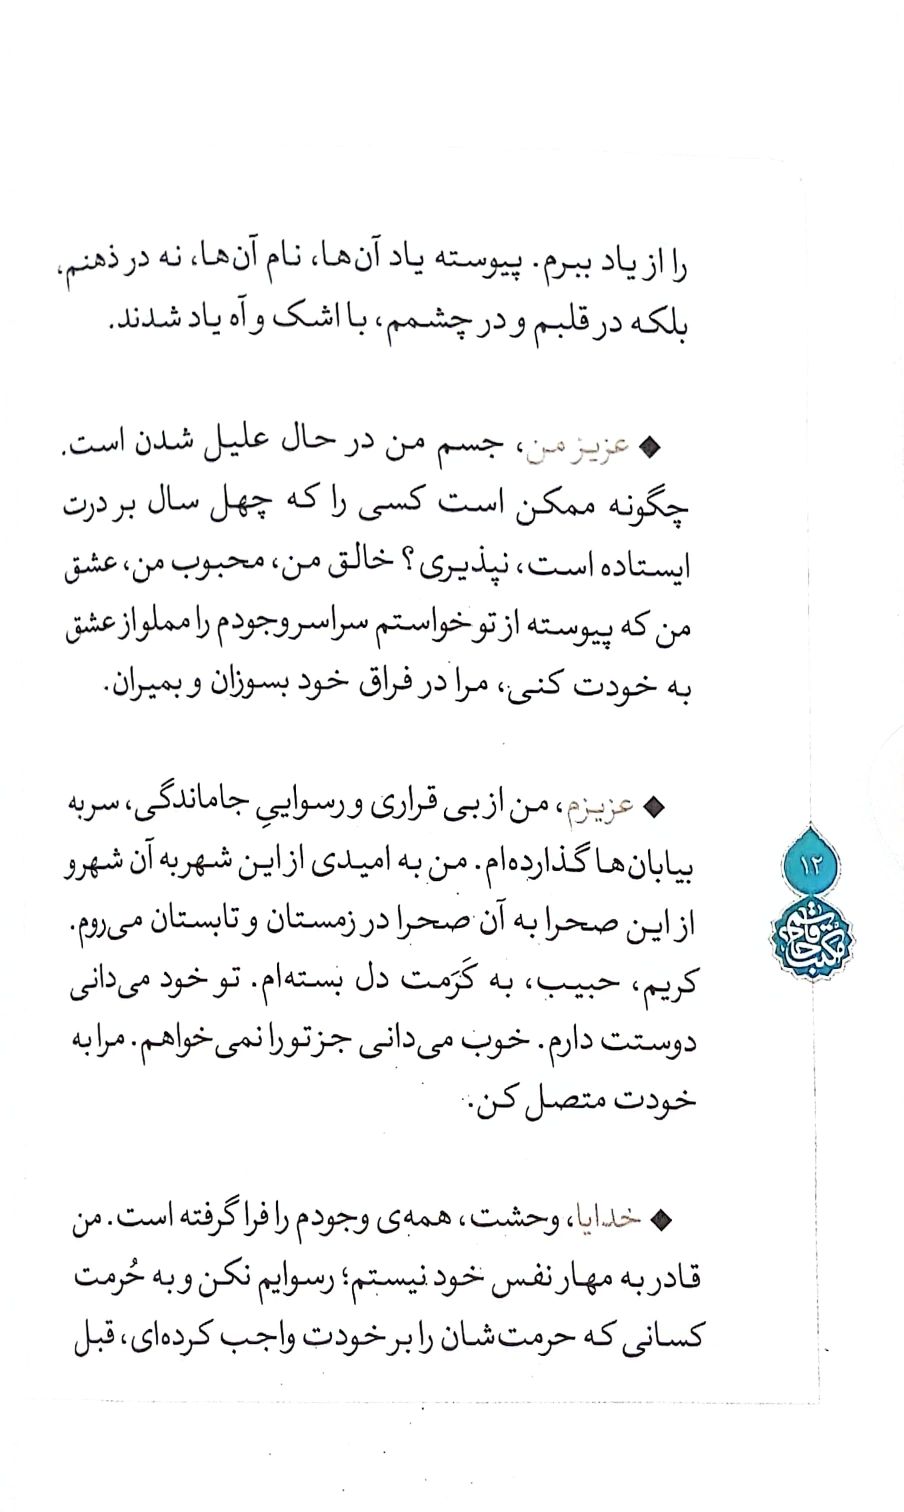 را از یاد ببرم. پیوسته یاد آن‌ها، نام آن‌ها، نه در ذهنم،
بلکه در قلبم و در چشمم، با اشک و آه یاد شدند.
◆ عزیز من، جسم من در حال علیل شدن است.
چگونه ممکن است کسی را که چهل سال بر درت
ایستاده است، نپذیری؟ خالق من، محبوب من، عشق
من که پیوسته از تو خواستم سراسر وجودم را مملو از عشق
به خودت کنی، مرا در فراق خود بسوزان و بمیران.
◆ عزیزم، من از بی قراری و رسواییِ جاماندگی، سر به
بیابان‌ها گذارده‌ام. من به امیدی از این شهر به آن شهر و
از این صحرا به آن صحرا در زمستان و تابستان می‌روم.
کریم، حبیب، به کَرَمت دل بسته‌ام. تو خود می‌دانی
دوستت دارم. خوب می‌دانی جز تو را نمی‌خواهم. مرا به
خودت متصل کن.
◆ خدایا، وحشت، همه‌ی وجودم را فرا گرفته است. من
قادر به مهار نفس خود نیستم؛ رسوایم نکن و به حُرمت
کسانی که حرمت‌شان را بر خودت واجب کرده‌ای، قبل
۱۲
مکتب حاج قاسم